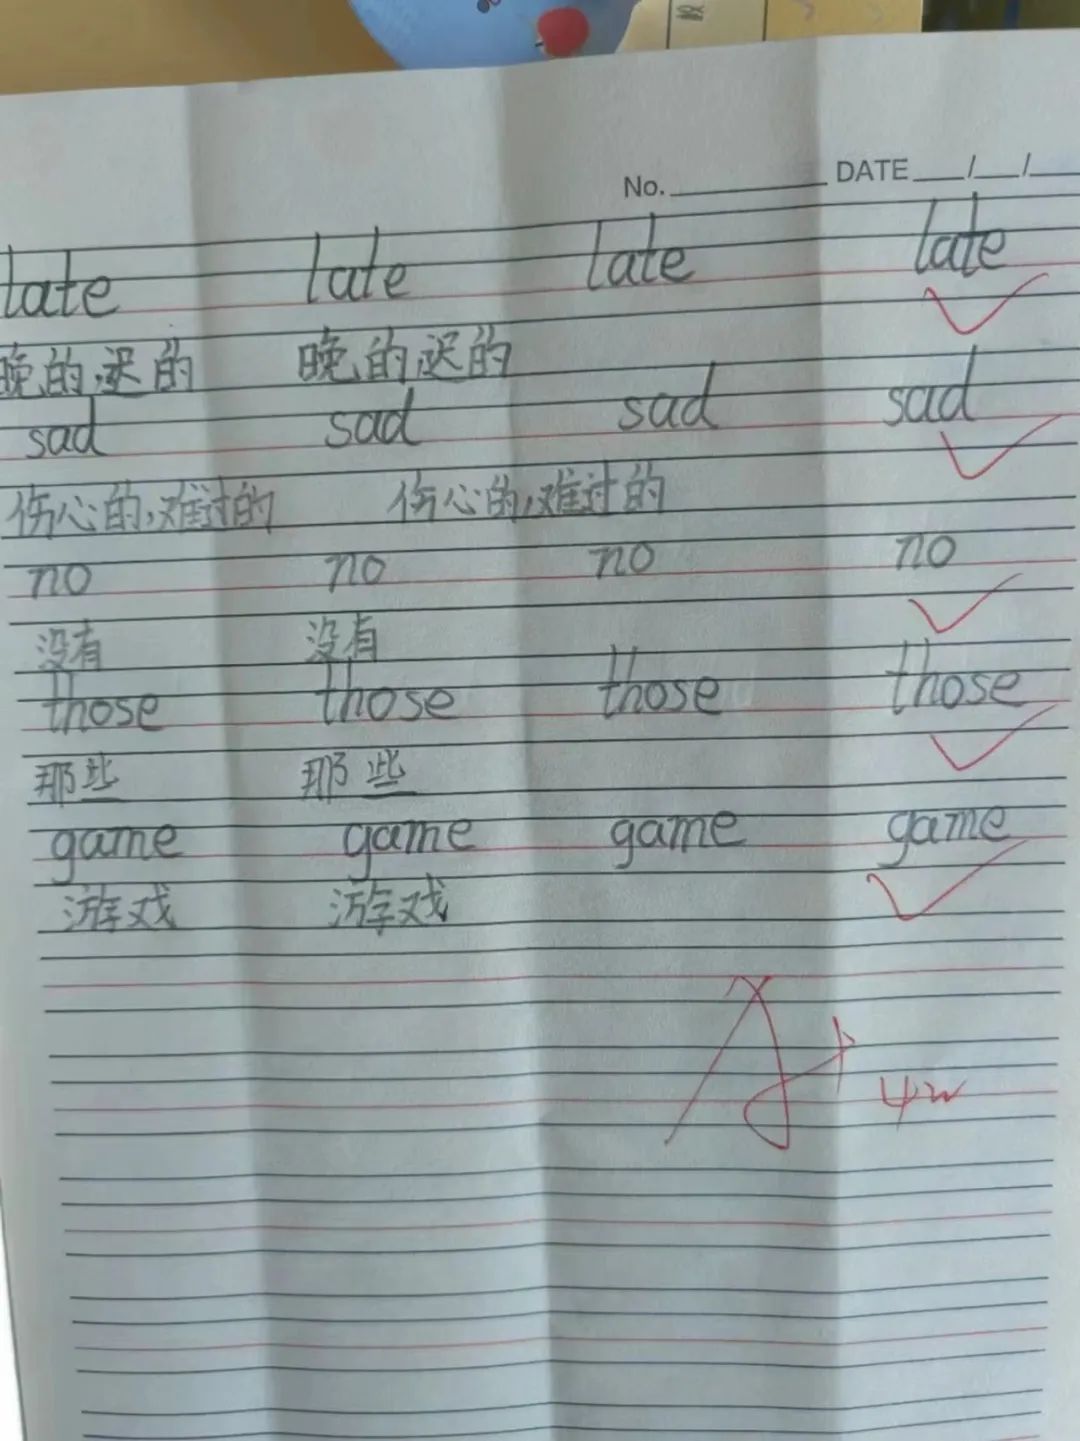 No. DATE / /
late late late late
晚的,迟的 晚的,迟的
sad sad sad sad
伤心的,难过的 伤心的,难过的
no no no no
没有 没有
those those those those
那些 那些
game game game game
游戏 游戏
A+